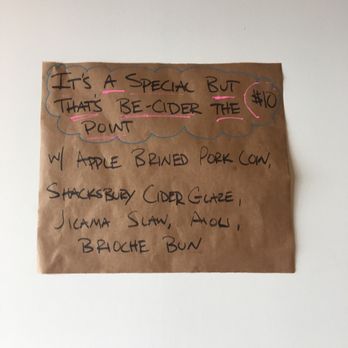 IT'S A SPECIAL BUT
THAT'S BE-CIDER THE $10
POINT
W/ APPLE BRINED PORK LOIN,
SHACKSBURY CIDER GLAZE,
JICAMA SLAW, AIOLI,
BRIOCHE BUN